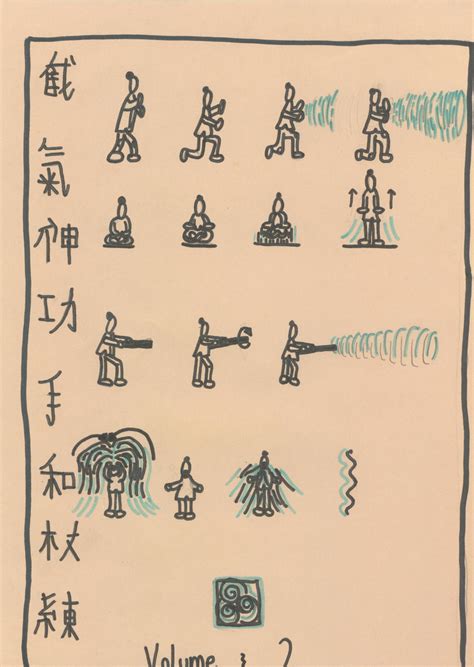 截氣神功手和杖練
Volume